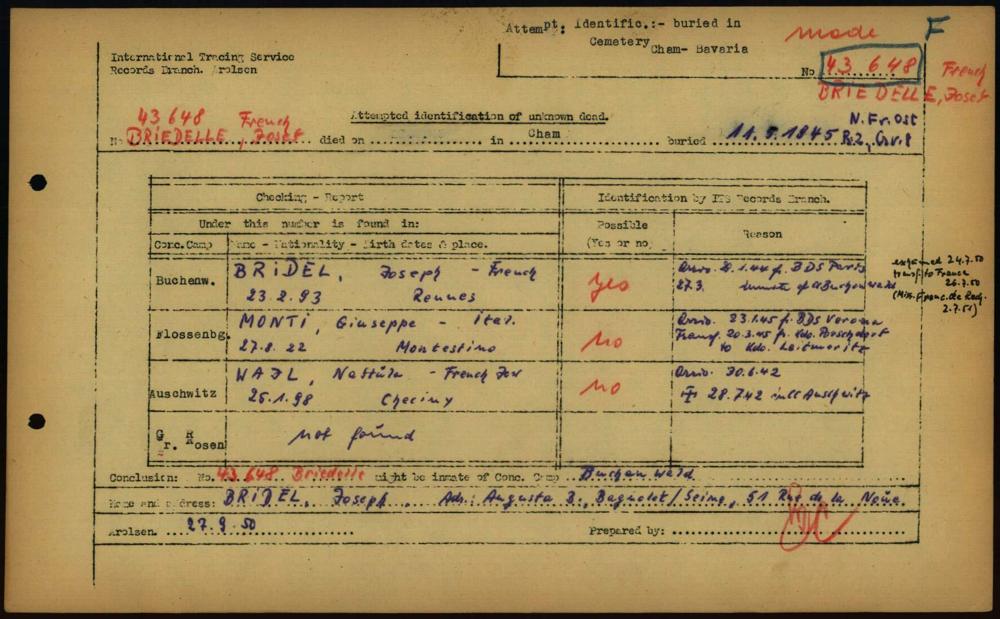 Attempt: Identific.:- buried in
Cemetery Cham- Bavaria
made F
International Tracing Service
Records Branch. Arolsen
No 43 648 French
BRIEDELLE, Josef
43 648 French
Attempted identification of unknown dead.
N. Fr. Ost
No BRIEDELLE, Josef died on in Cham buried 11.5.1845 R.2, Gr.8
Checking - Report
Identification by ITS Records Branch.
Under this number is found in:
Possible
(Yes or no)
Reason
Conc.Camp Name - Nationality - Birth dates & place.
Buchenw.
BRIDEL, Joseph - French
23.2.93 Rennes
Yes
Arriv. 1.44 f. BDS Paris
27.3. inmate of CC Buchenwald
examined 24.7.50
transf. to France
26.7.50
2.7.51)
Flossenbg.
MONTI, Giuseppe - Ital.
27.8.22 Montestino
No
Arriv. 23.1.45 f. BDS Verona
Transf. 20.3.45 f. Kdo.
to Kdo. Leitmeritz
Auschwitz
WAJL, - French Jew
25.1.98 Checiny
No
Arriv. 30.6.42
28.7.42 in CC Auschwitz
Gr. Rosen
not found
Conclusion: No. 43 648 Briedelle might be inmate of Conc. Camp Buchenwald
Name and address: BRIDEL, Joseph, Adr.: Augusta B., Bagnolet/Seine, 51 Rue de la Noüe.
Arolsen. 27.9.50 Prepared by: